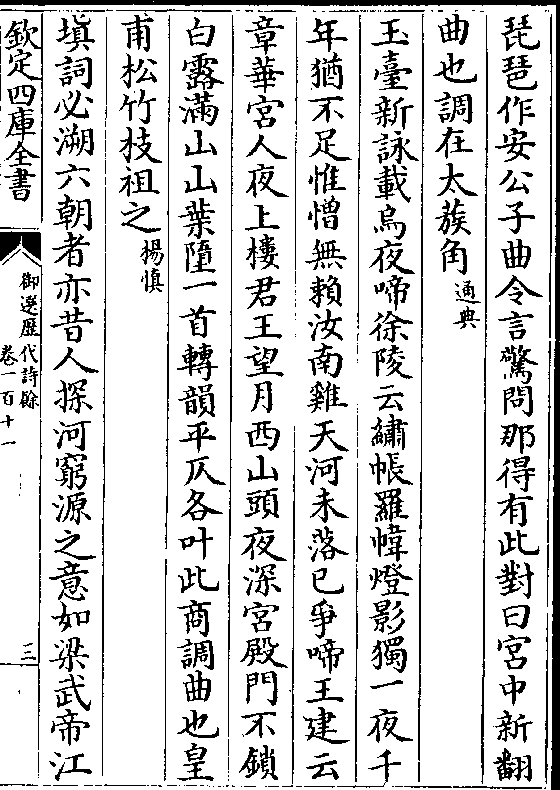 琵琶作安公子曲令言驚問那得有此對曰宮中新翻
曲也調在太蔟角通典
玉臺新詠載烏夜啼徐陵云繡帳羅幃燈影獨一夜千
年猶不足惟憎無賴汝南雞天河未落已爭啼王建云
章華宮人夜上樓君王望月西山頭夜深宮殿門不鎖
白露滿山山葉墮一首轉韻平仄各叶此商調曲也皇
甫松竹枝祖之楊慎
填詞必溯六朝者亦昔人探河窮源之意如梁武帝江
欽定四庫全書
御選歷代詩餘
卷一百十一
三